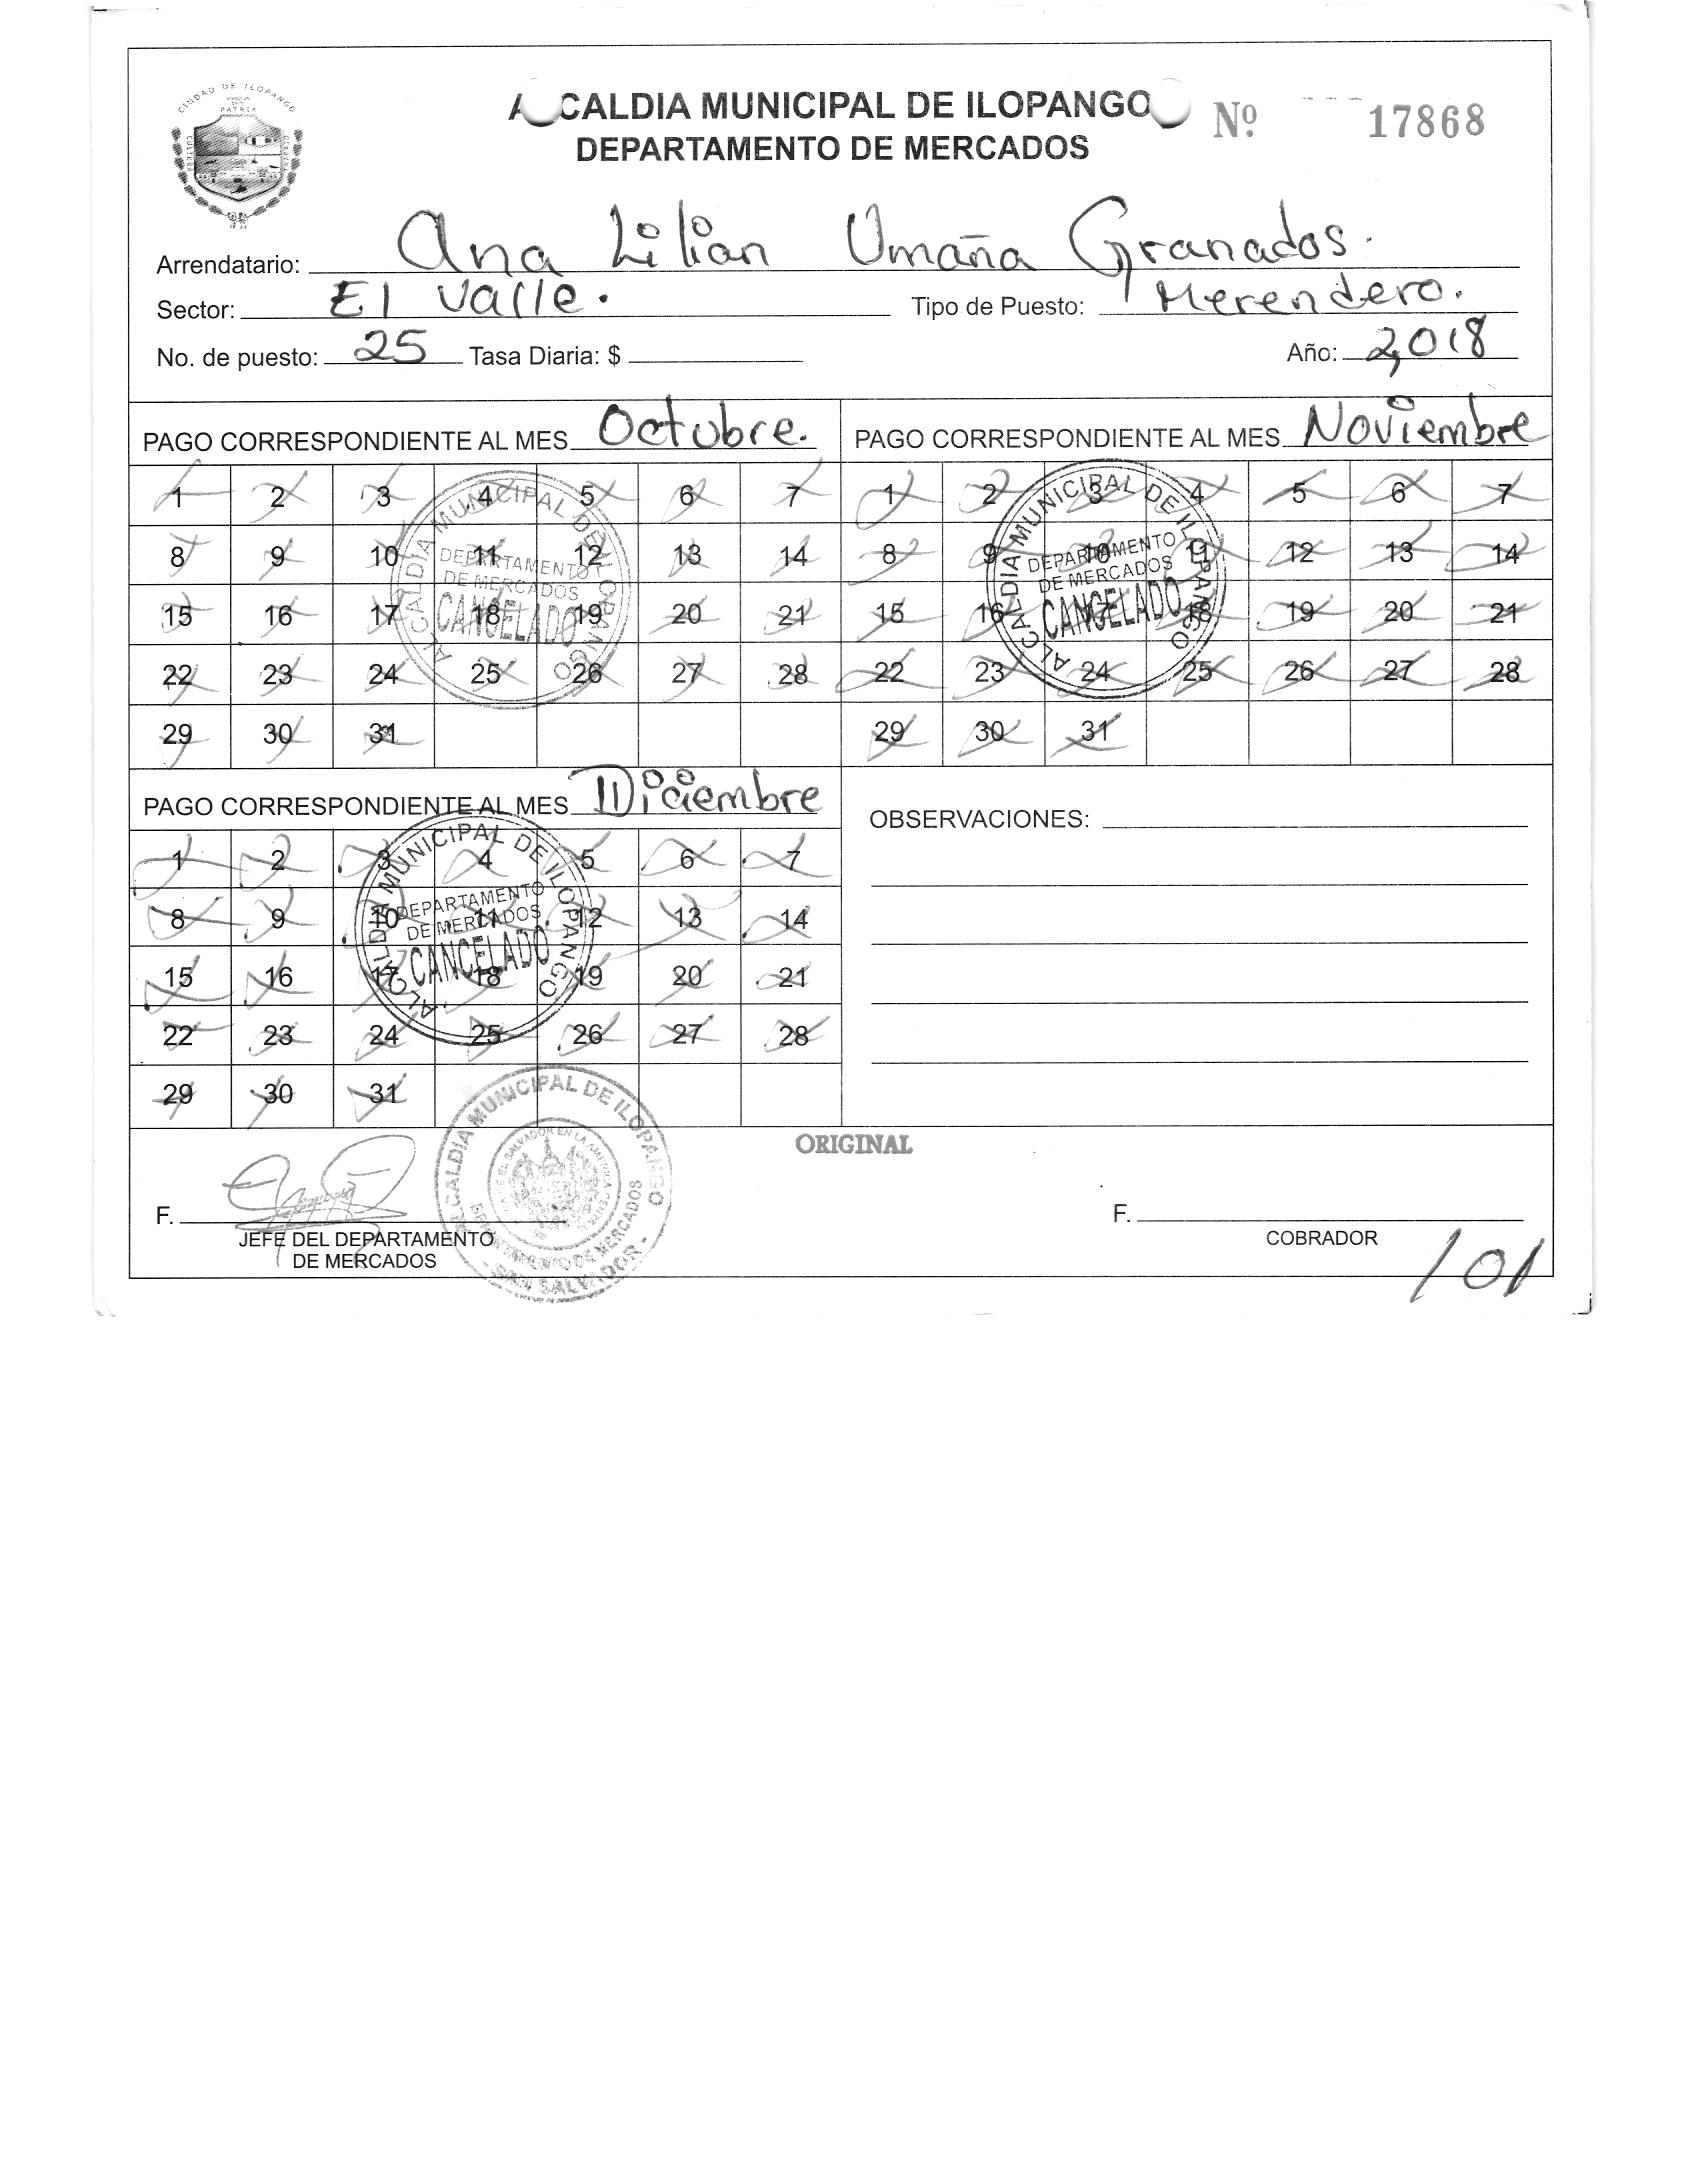 CIUDAD DE ILOPANGO
PATRIA
CULTURA
ALCALDIA MUNICIPAL DE ILOPANGO
Nº 17868
DEPARTAMENTO DE MERCADOS
Arrendatario: Ana Lilian Umaña Granados.
Sector: El Valle. Tipo de Puesto: Merendero.
No. de puesto: 25 Tasa Diaria: $ Año: 2,018
PAGO CORRESPONDIENTE AL MES Octubre.
1 2 3 4 5 6 7
8 9 10 11 12 13 14
15 16 17 18 19 20 21
22 23 24 25 26 27 28
29 30 31
ALCALDIA MUNICIPAL DE ILOPANGO
DEPARTAMENTO
DE MERCADOS
CANCELADO
PAGO CORRESPONDIENTE AL MES Noviembre
1 2 3 4 5 6 7
8 9 10 11 12 13 14
15 16 17 18 19 20 21
22 23 24 25 26 27 28
29 30 31
ALCALDIA MUNICIPAL DE ILOPANGO
DEPARTAMENTO
DE MERCADOS
CANCELADO
PAGO CORRESPONDIENTE AL MES Diciembre
1 2 3 4 5 6 7
8 9 10 11 12 13 14
15 16 17 18 19 20 21
22 23 24 25 26 27 28
29 30 31
ALCALDIA MUNICIPAL DE ILOPANGO
DEPARTAMENTO
DE MERCADOS
CANCELADO
OBSERVACIONES:
ORIGINAL
F.
JEFE DEL DEPARTAMENTO
DE MERCADOS
ALCALDIA MUNICIPAL DE ILOPANGO
DEPARTAMENTO DE MERCADOS
SAN SALVADOR
F.
COBRADOR
101